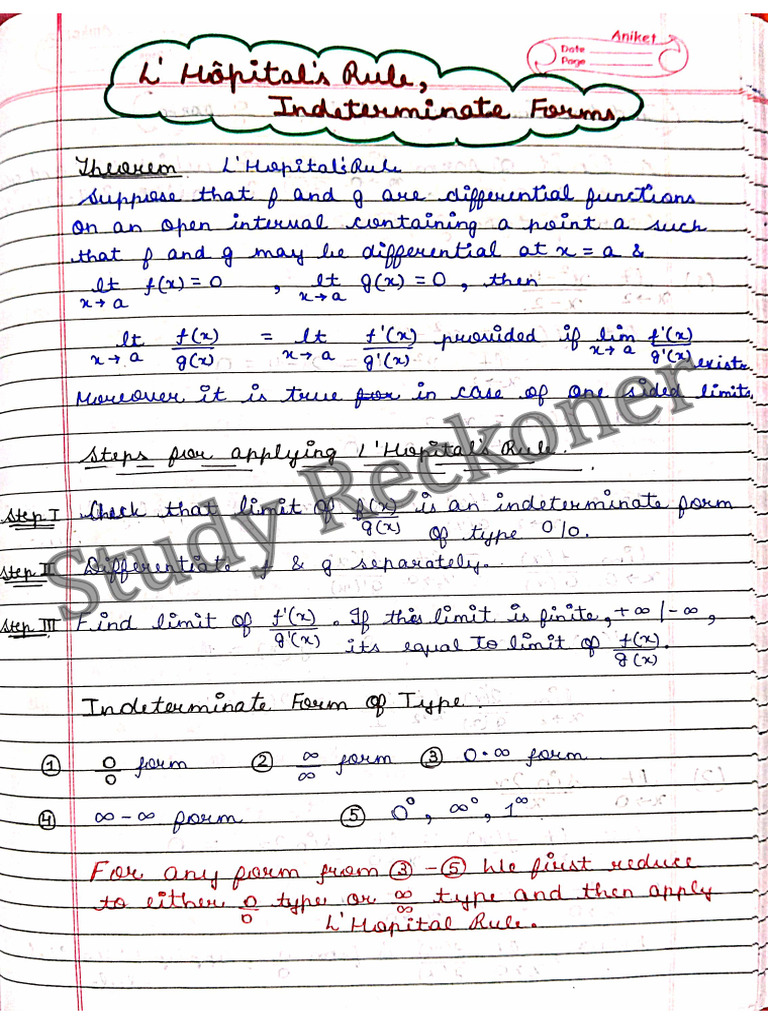 Aniket
Date
Page
L'Hôpital's Rule,
Indeterminate Forms
Theorem L'Hopital's Rule
Suppose that f and g are differential functions
on an open interval containing a point a such
that f and g may be differential at x = a &
lt x→a f(x) = 0 , lt x→a g(x) = 0 , then
lt x→a f(x)/g(x) = lt x→a f'(x)/g'(x) provided if lim x→a f'(x)/g'(x) exists
Moreover it is true for in case of one sided limits
Steps for applying L'Hopital's Rule.
Step I Check that limit of f(x)/g(x) is an indeterminate form
of type 0/0.
Step II Differentiate f & g separately.
Step III Find limit of f'(x)/g'(x). If this limit is finite, +∞/-∞,
its equal to limit of f(x)/g(x).
Indeterminate Form of Type.
① 0/0 form ② ∞/∞ form ③ 0·∞ form
④ ∞-∞ form ⑤ 0⁰, ∞⁰, 1^∞
For any form from ③-⑤ we first reduce
to either 0/0 type or ∞/∞ type and then apply
L'Hopital Rule.
Study Reckoner